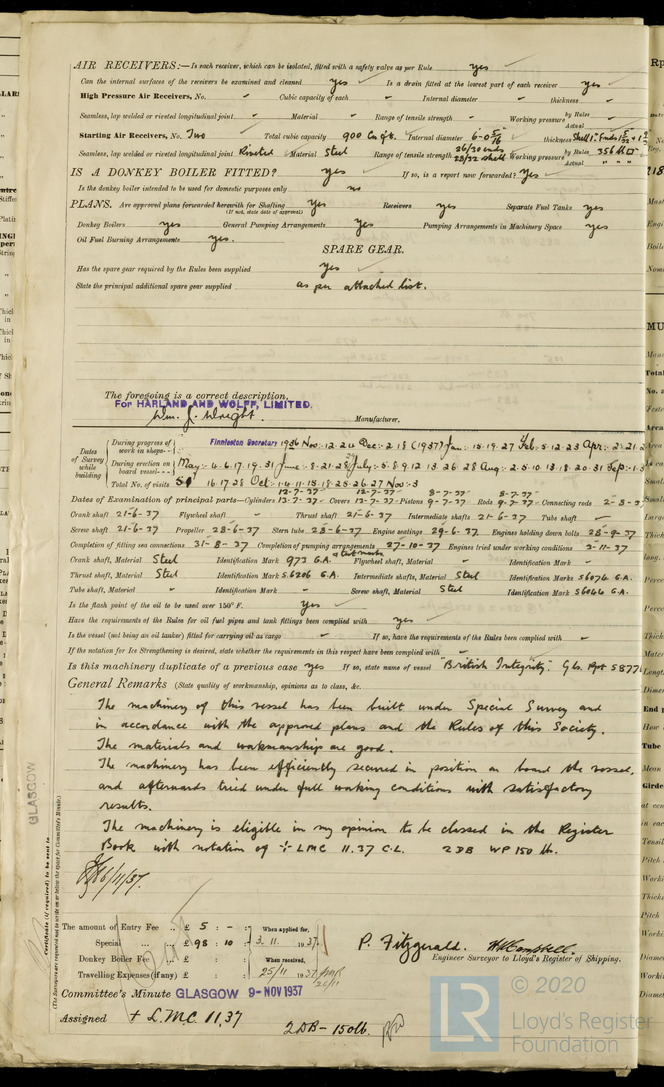 AIR RECEIVERS:—Is each receiver, which can be isolated, fitted with a safety valve as per Rule yes
Can the internal surfaces of the receivers be examined and cleaned yes Is a drain fitted at the lowest part of each receiver yes
High Pressure Air Receivers, No. Cubic capacity of each Internal diameter thickness
Seamless, lap welded or riveted longitudinal joint Material Range of tensile strength Working pressure by Rules
Actual
Starting Air Receivers, No. Two Total cubic capacity 900 Cu. ft. Internal diameter 6'-0 5/16 thickness Shell 1" Ends
Seamless, lap welded or riveted longitudinal joint Riveted Material Steel Range of tensile strength 26/30 ends 28/32 shell Working pressure by Rules 356 lb □"
Actual " " "
IS A DONKEY BOILER FITTED? yes If so, is a report now forwarded? Yes
Is the donkey boiler intended to be used for domestic purposes only no
PLANS. Are approved plans forwarded herewith for Shafting Yes Receivers yes Separate Fuel Tanks yes
(If not, state date of approval)
Donkey Boilers yes General Pumping Arrangements yes Pumping Arrangements in Machinery Space yes
Oil Fuel Burning Arrangements yes.
SPARE GEAR.
Has the spare gear required by the Rules been supplied yes
State the principal additional spare gear supplied as per attached list.
The foregoing is a correct description,
For HARLAND AND WOLFF, LIMITED.
Wm. J. Wright. Manufacturer.
Dates of Survey while building
During progress of work in shops-- Finnieston Secretary 1936 Nov: 12. 24 Dec: 2. 18 (1937) Jan: 15. 19. 27 Feb: 5. 12. 23 Apr: 2. 21. 2
During erection on board vessel--- May: 4. 6. 17. 19. 31 June: 8. 21. 28 July: 5. 8. 9. 12. 13. 26. 28 Aug: 2. 5. 10. 13. 18. 20. 31 Sep: 1.
Total No. of visits 16. 17. 28 Oct: 1. 4. 11. 15. 18. 25. 26. 27 Nov: 3
12-7-37 12-7-37 8-7-37 8-7-37
Dates of Examination of principal parts—Cylinders 13-7-37 Covers 13-7-37 Pistons 9-7-37 Rods 9-7-37 Connecting rods
Crank shaft 21-6-37 Flywheel shaft Thrust shaft 21-6-37 Intermediate shafts 21-6-37 Tube shaft
Screw shaft 21-6-37 Propeller 28-6-37 Stern tube 28-6-37 Engine seatings 29-6-37 Engines holding down bolts 28-9-37
Completion of fitting sea connections 31-8-37 Completion of pumping arrangements 27-10-37 Engines tried under working conditions 3-11-37
Crank shaft, Material Steel Identification Mark 973 G.A. Flywheel shaft, Material Identification Mark
Thrust shaft, Material Steel Identification Mark S6206 G.A. Intermediate shafts, Material Steel Identification Marks S6074 G.A.
Tube shaft, Material Identification Mark Screw shaft, Material Steel Identification Mark S6044 G.A.
Is the flash point of the oil to be used over 150° F. Yes
Have the requirements of the Rules for oil fuel pipes and tank fittings been complied with yes
Is the vessel (not being an oil tanker) fitted for carrying oil as cargo If so, have the requirements of the Rules been complied with
If the notation for Ice Strengthening is desired, state whether the requirements in this respect have been complied with
Is this machinery duplicate of a previous case yes If so, state name of vessel "British Integrity". Gls. Rpt 5877
General Remarks (State quality of workmanship, opinions as to class, &c.
The machinery of this vessel has been built under Special Survey and
in accordance with the approved plans and the Rules of this Society.
The materials and workmanship are good.
The machinery has been efficiently secured in position on board the vessel,
and afterwards tried under full working conditions with satisfactory
results.
The machinery is eligible in my opinion to be classed in the Register
Book with notation of + LMC 11.37 C.L. 2DB WP 150 lb.
GLASGOW
Certificate (if required) to be sent to
(The Surveyors are requested not to write on or below the space for Committee's Minute.)
The amount of Entry Fee .. £ 5 : - : When applied for,
Special ... £ 98 : 10 : 3. 11. 1937.
Donkey Boiler Fee ... £ : : When received,
Travelling Expenses (if any) £ : : 25/11 1937
P. Fitzgerald.
Engineer Surveyor to Lloyd's Register of Shipping.
Committee's Minute GLASGOW 9-NOV 1937
Assigned + L.M.C. 11.37
2DB - 150lb.
LR
© 2020
Lloyd's Register
Foundation